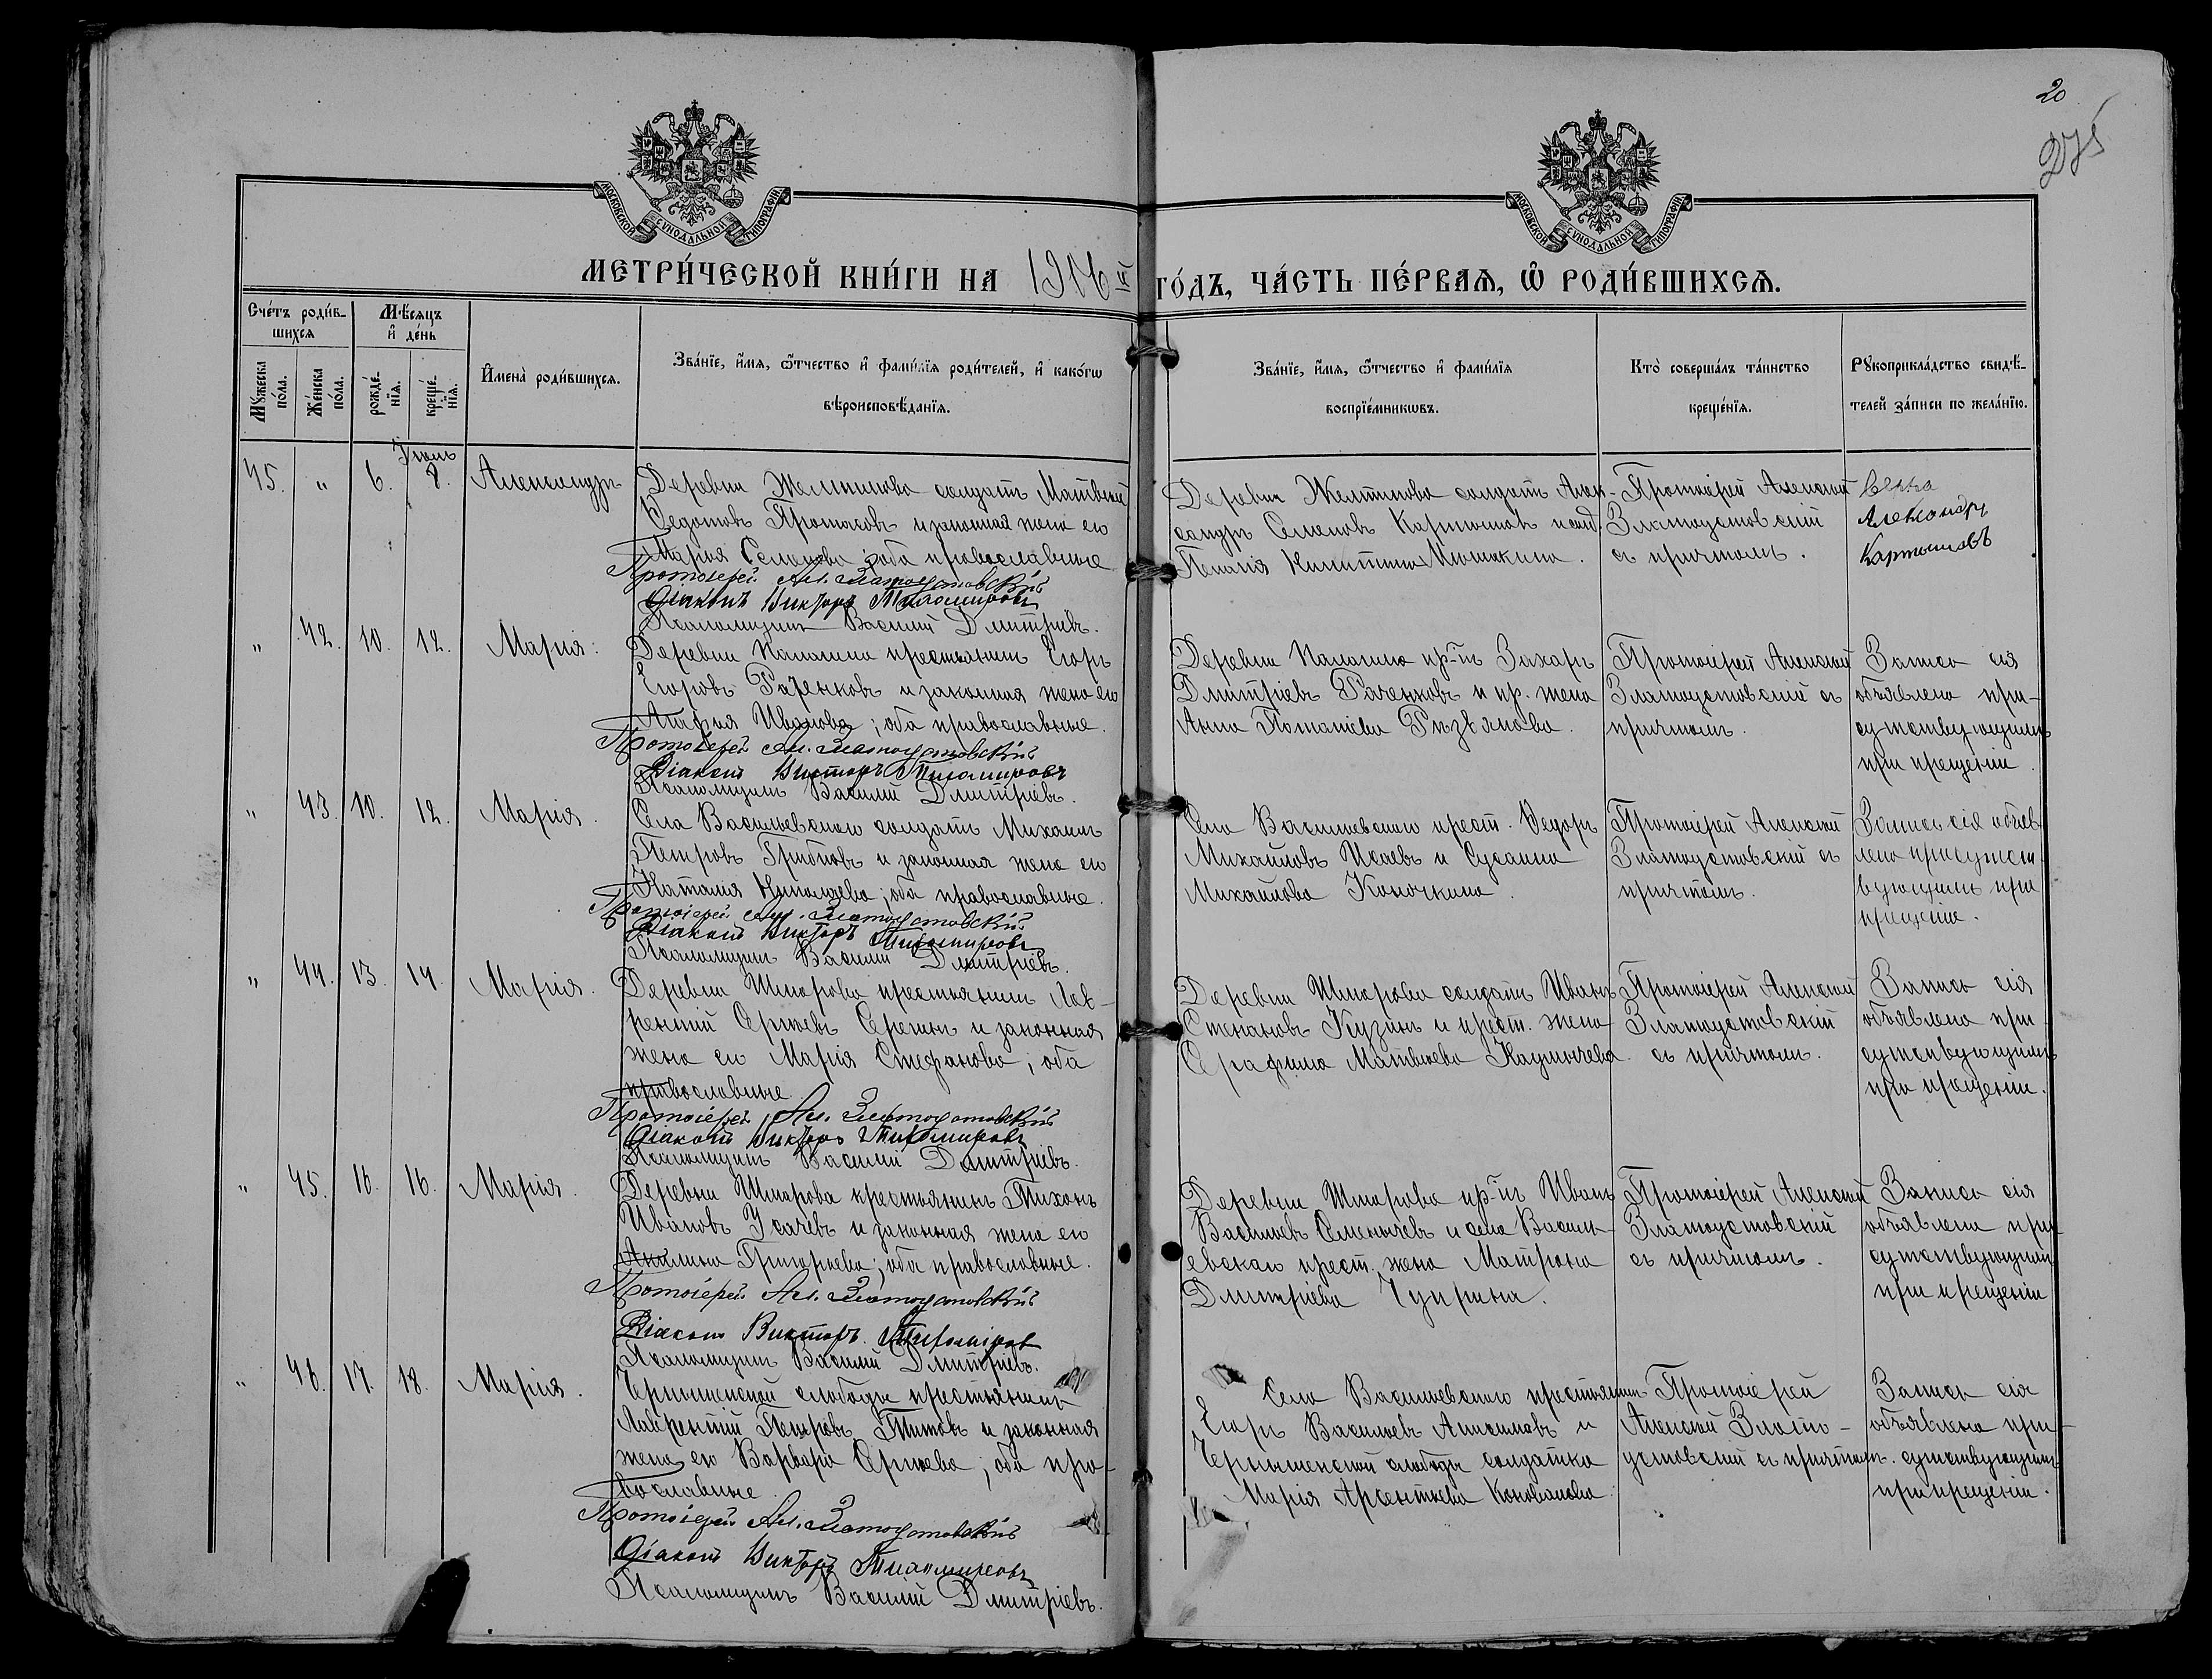 20
275
МОСКОВСКОЙ СѴНОДАЛЬНОЙ ТИПОГРАФІИ
МОСКОВСКОЙ СѴНОДАЛЬНОЙ ТИПОГРАФІИ
МЕТРИ́ЧЕСКОЙ КНИ́ГИ НА 1916й ГО́ДЪ, ЧА́СТЬ ПЕ́РВАѦ, Ѽ РОДИ́ВШИХСѦ.
Сче́тъ роди́в-
шихсѧ
Мꙋ́жеска по́ла.
Же́нска по́ла.
Мѣ́сѧцъ
и҆ де́нь
рожде́-
нїѧ.
креще́-
нїѧ.
И҆мена̀ роди́вшихсѧ.
Зва́нїе, и҆́мѧ, ѻ҆́тчество и҆ фамѝлїѧ роди́телей, и҆ како́гѡ
вѣроисповѣ́данїѧ.
Зва́нїе, и҆́мѧ, ѻ҆́тчество и҆ фамѝлїѧ
воспрїе́мникѡвъ.
Кто̀ соверша́лъ та́инство
креще́нїѧ.
Рꙋкоприкла́дство свидѣ́-
телей за́писи по жела́нїю.
Іюль
45. " 6. 8. Александръ
Деревни Желтикова солдатъ Матвѣй
Ѳедотовъ Протасовъ и законная жена его
Марія Семенова; оба православные
Протоіерей Ал. Златоустовскій
Діаконъ Викторъ Тихомировъ
Псаломщикъ Василій Дмитріевъ.
Деревни Желтикова солдатъ Алек-
сандръ Семеновъ Картошовъ и
Пелагія Никитина
Протоіерей Алексій
Златоустовскій
съ причтомъ.
Александръ
" 42. 10. 12. Марія.
Деревни крестьянинъ Егоръ
Егоровъ и законная жена его
Агафья Иванова; оба православные.
Протоіерей Ал. Златоустовскій
Діаконъ Викторъ Тихомировъ
Псаломщикъ Василій Дмитріевъ.
Деревни кр-нъ Захаръ
Дмитріевъ и кр. жена
Анна Потапіева
Протоіерей Алексій
Златоустовскій съ
причтомъ.
Запись сія
объявлена при-
сутствующимъ
при крещеніи
" 43. 10. 12. Марія.
Села Васильевскаго солдатъ Михаилъ
Петровъ Грибковъ и законная жена его
Наталія; оба православные.
Протоіерей Ал. Златоустовскій
Діаконъ Викторъ Тихомировъ
Псаломщикъ Василій Дмитріевъ.
Села Васильевскаго крест. Ѳедоръ
Михайловъ Исаевъ и Сусанна
Михайлова Конячкина.
Протоіерей Алексій
Златоустовскій съ
причтомъ.
Запись сія объяв-
лена присутст-
вующимъ при
крещеніи.
" 44. 13. 14. Марія.
Деревни Шмарова крестьянинъ Лав-
рентій Сергѣевъ Серегинъ и законная
жена его Марія Стефанова; оба
православные
Протоіерей Ал. Златоустовскій
Діаконъ Викторъ Тихомировъ
Псаломщикъ Василій Дмитріевъ.
Деревни Шмарова солдатъ Иванъ
Степановъ Кузинъ и крест. жена
Серафима Матвѣева
Протоіерей Алексій
Златоустовскій
съ причтомъ.
Запись сія
объявлена при-
сутствующимъ
при крещеніи.
" 45. 16. 16. Марія.
Деревни Шмарова крестьянинъ Тихонъ
Ивановъ Усачевъ и законная жена его
Акилина Григорьева; оба православные.
Протоіерей Ал. Златоустовскій
Діаконъ Викторъ Тихомировъ
Псаломщикъ Василій Дмитріевъ.
Деревни Шмарова кр-нъ Иванъ
Васильевъ Семенычевъ и села Василь-
евскаго крест. жена Матрона
Дмитріева Чуприна.
Протоіерей Алексій
Златоустовскій
съ причтомъ.
Запись сія
объявлена при-
сутствующимъ
при крещеніи
" 46. 17. 18. Марія.
Чернышенской слободы крестьянинъ
Лаврентій Петровъ Титовъ и законная
жена его Варвара Сергѣева; оба пра-
вославные
Протоіерей Ал. Златоустовскій
Діаконъ Викторъ Тихомировъ
Псаломщикъ Василій Дмитріевъ.
Села Васильевскаго крестьянинъ
Егоръ Васильевъ Анисимовъ и
Чернышенской слободы солдатка
Марія Арсентьева Коновалова.
Протоіерей
Алексій Злато-
устовскій съ причтомъ.
Запись сія
объявлена при-
сутствующимъ
при крещеніи.